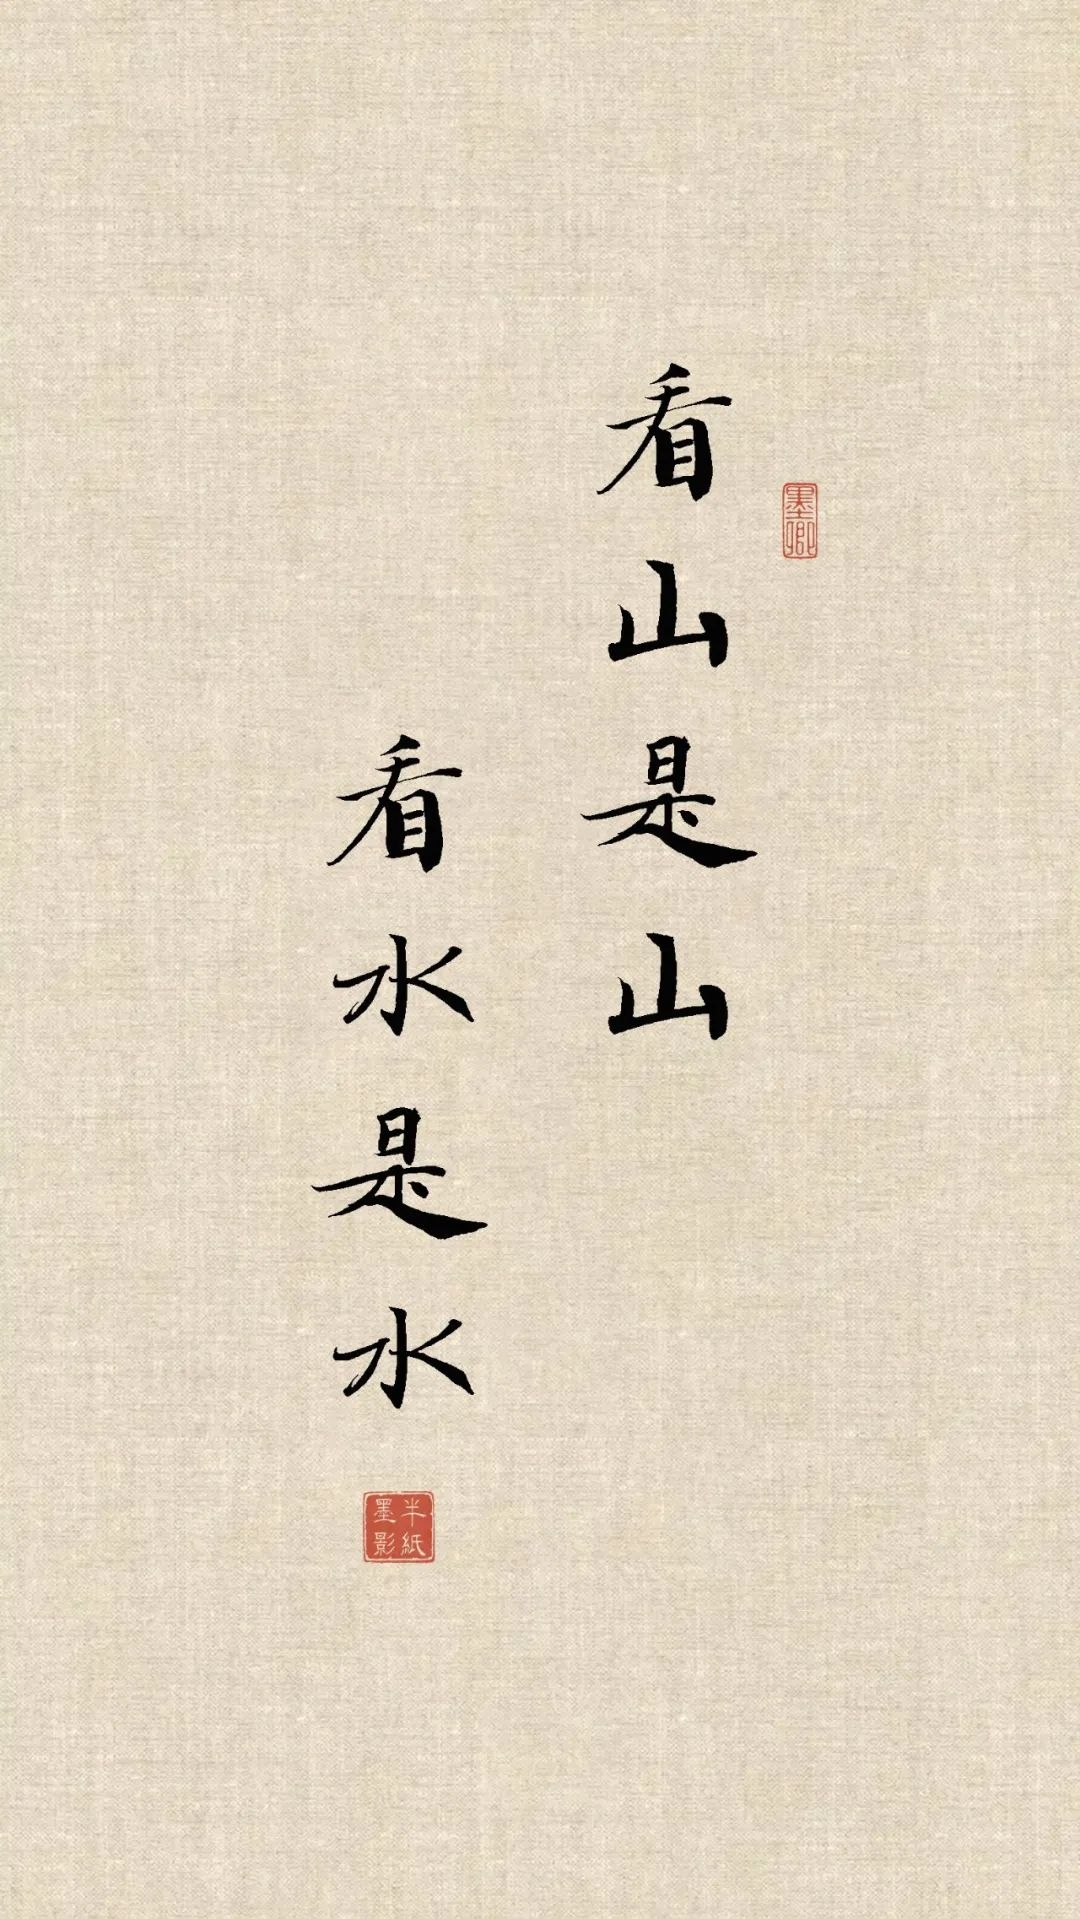 看山是山
墨卿
看水是水
半紙墨影